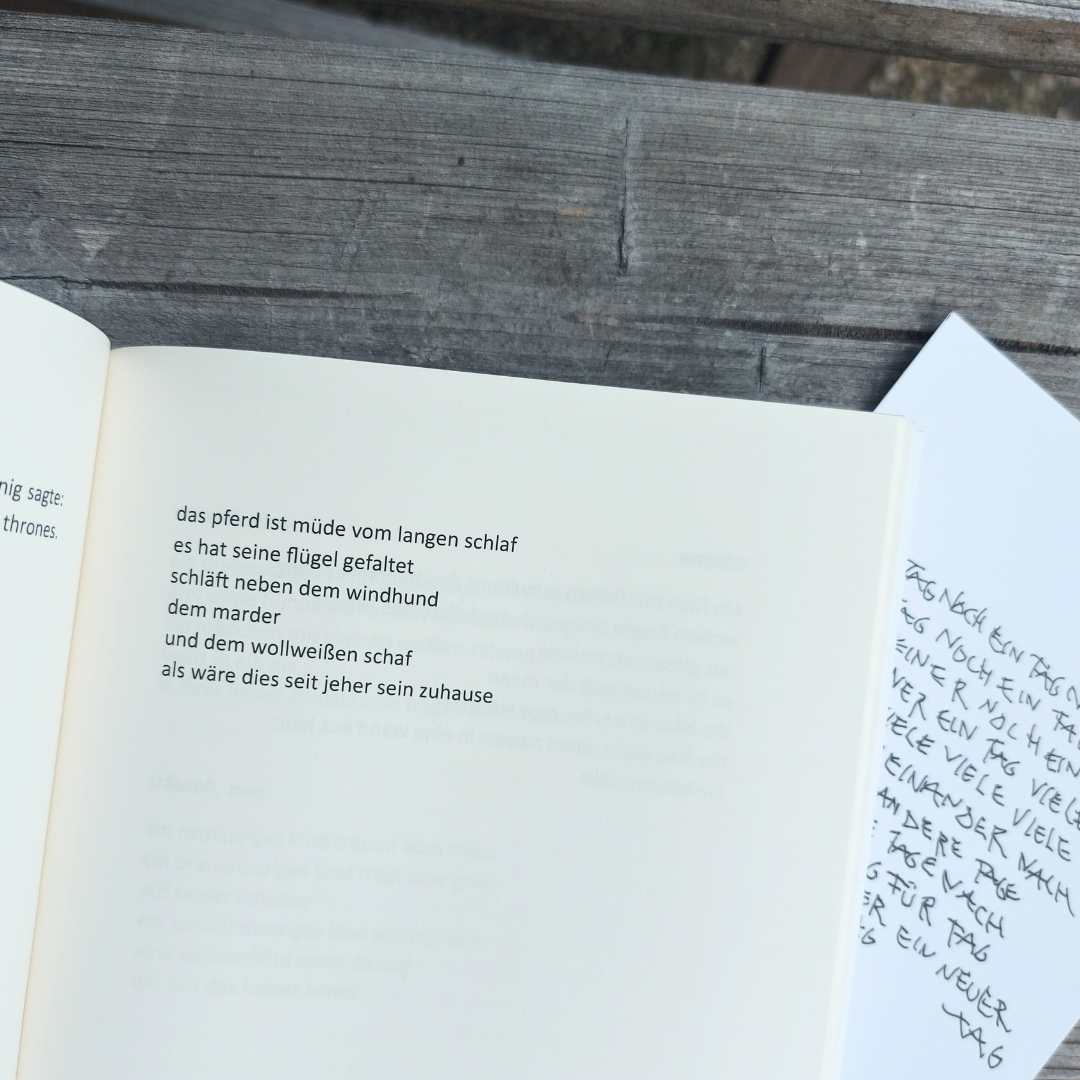 nig sagte:
thrones.
das pferd ist müde vom langen schlaf
es hat seine flügel gefaltet
schläft neben dem windhund
dem marder
und dem wollweißen schaf
als wäre dies seit jeher sein zuhause
TAG NOCH EIN TAG
NOCH EIN TAG
EINER NOCH EIN
EIN TAG VIELE
VIELE VIELE VIELE
EINANDER NACH
ANDERE TAGE
TAGE NACH
FÜR TAG
ER EIN NEUER
TAG